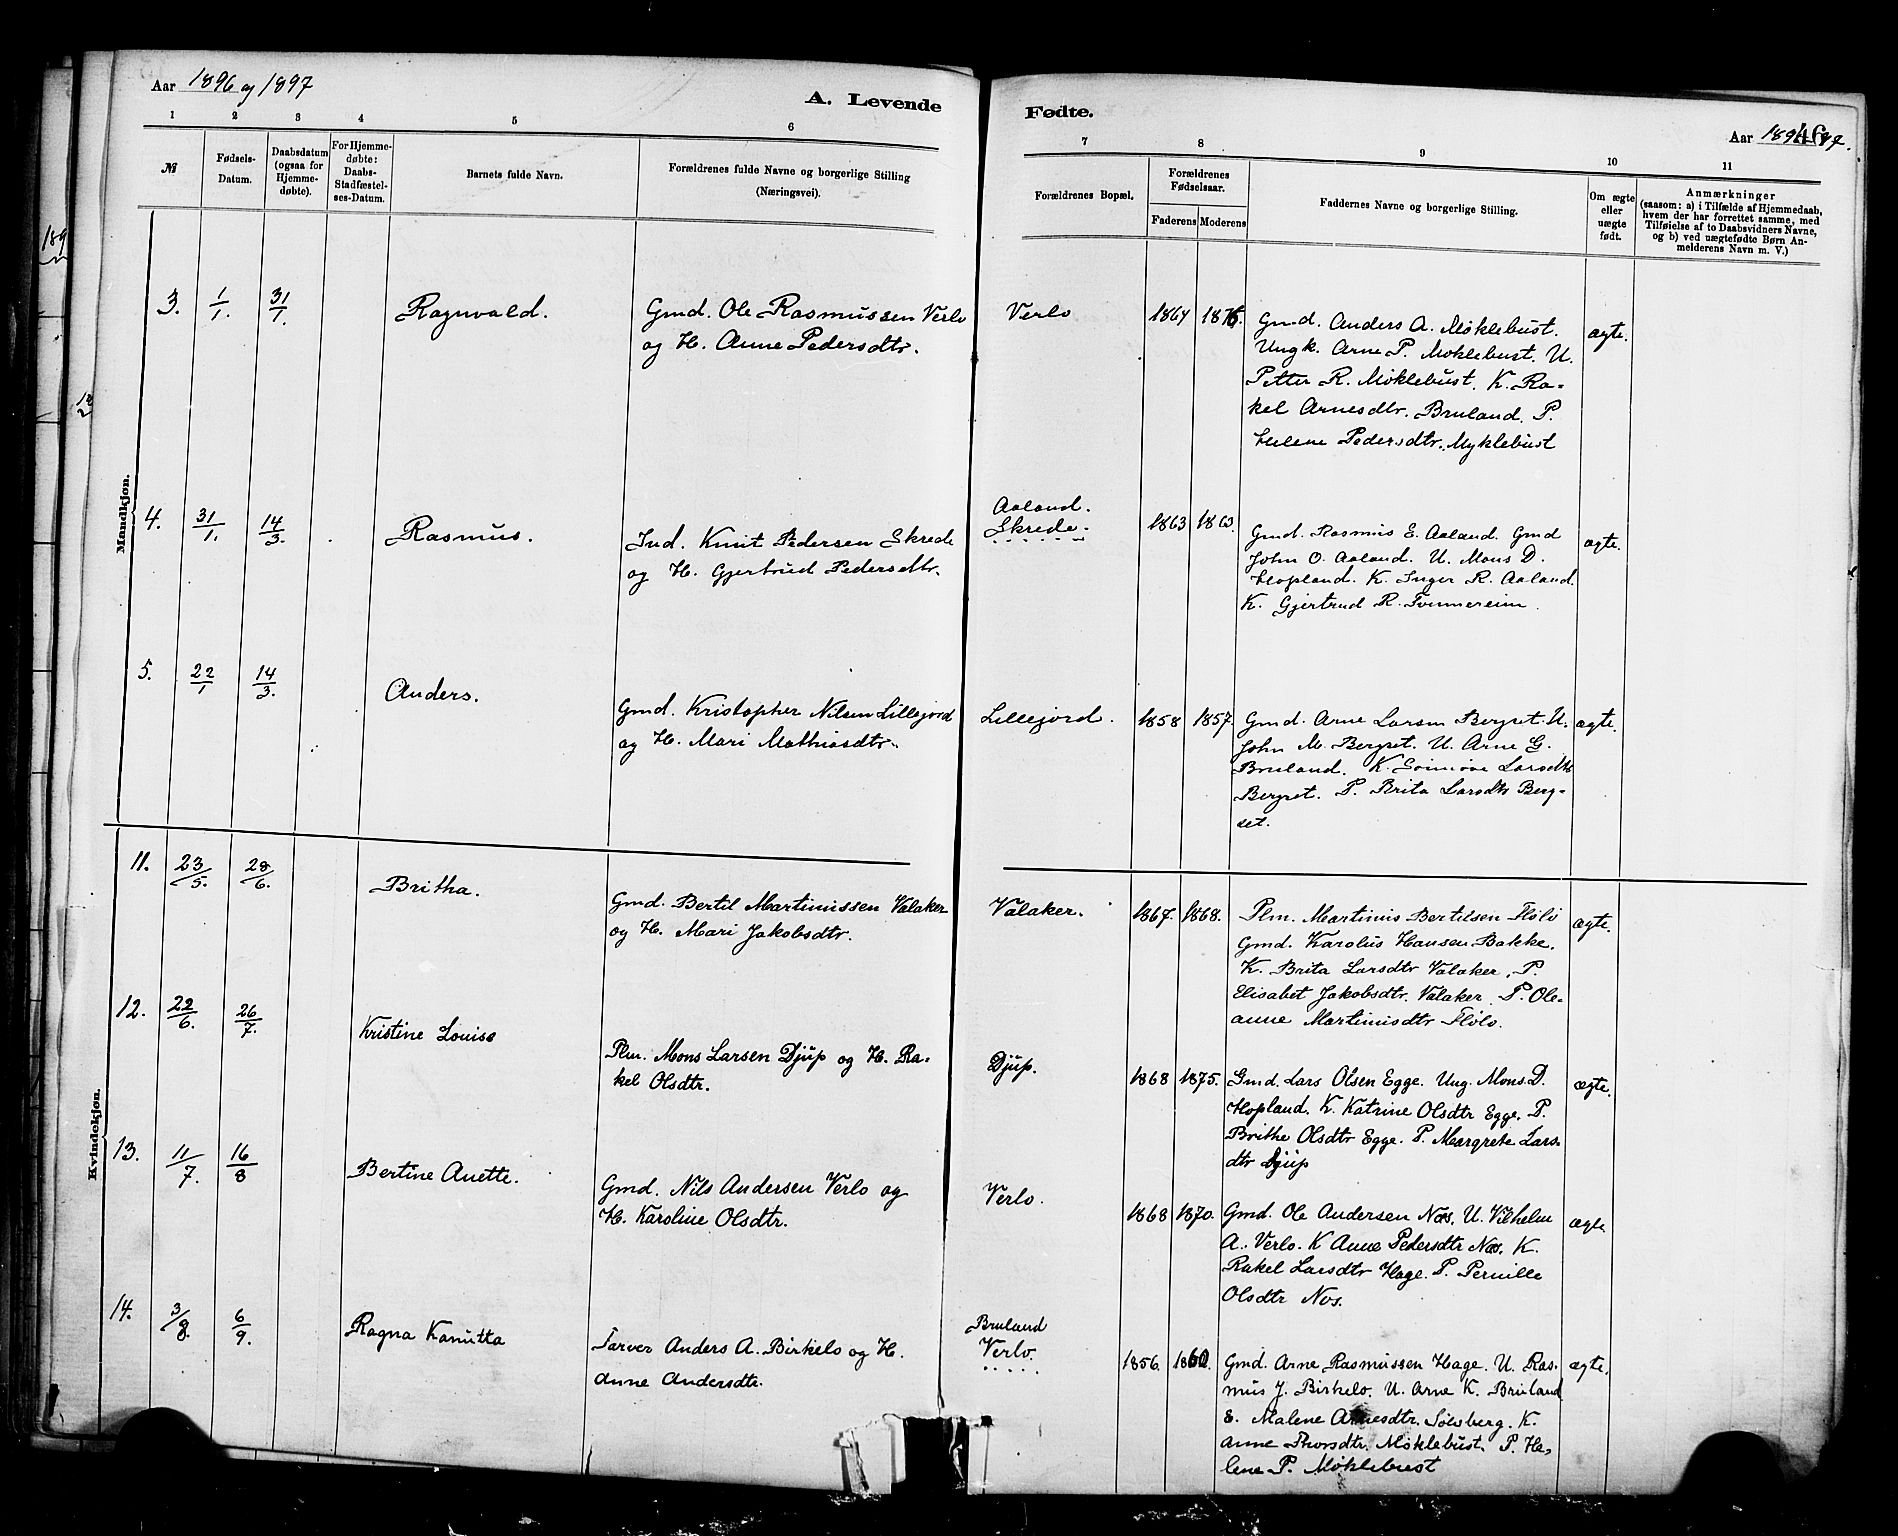 Aar 1896 og 1897
A. Levende
Fødte.
Aar 1896
46
1 2 3 4 5 6 7 8 9 10 11
№
Fødsels-
Datum.
Daabsdatum
(ogsaa for
Hjemme-
døbte).
For Hjemme-
døbte:
Daabs-
Stadfæstel-
ses-Datum.
Barnets fulde Navn.
Forældrenes fulde Navne og borgerlige Stilling
(Næringsvei).
Forældrenes Bopæl.
Forældrenes
Fødselsaar.
Faderens
Moderens
Faddernes Navne og borgerlige Stilling.
Om ægte
eller
uægte
født.
Anmærkninger
(saasom: a) i Tilfælde af Hjemmedaab,
hvem der har forrettet samme, med
Tilføielse af to Daabsvidners Navne,
og b) ved uægtefødte Børn An-
melderens Navn m. V.)
Mandkjøn.
3. 1/1. 31/1. Ragnvald.
Gmd. Ole Rasmussen Verlo
og H. Anne Pedersdtr.
Verlo
1864
Gmd. Anders A. Møklebust.
Ungk. Arne P. Moklebust. U.
Petter R. Møklebust. K. Ra-
kel Arnesdtr. Bruland. P.
Helene Pedersdtr. Myklebust
ægte.
4. 31/1. 14/3. Rasmus.
Ind. Knut Pedersen Skrede
og H. Gjertrud Pedersdtr.
Aaland.
Skrede.
1863 1863.
Gmd. Rasmus E. Aaland. Gmd
John O. Aaland. U. Mons D.
Hopland. K. Inger R. Aaland.
K. Gjertrud R. Tvinnereim.
ægte.
5. 22/1 14/3. Anders.
Gmd. Kristopher Nilsen Lillejord
og H. Mari Mathiasdtr.
Lillejord.
1858 1857.
Gmd. Arne Larsen Bergset. U.
John M. Bergset. U. Arne G.
Bruland. K. Larsdtr
Bergset. P. Brita Larsdtr Berg-
set.
ægte.
Kvindekjøn.
11. 23/5. 28/6. Britha.
Gmd. Bertil Martinussen Valaker
og H. Mari Jakobsdtr.
Valaker.
1867. 1868.
Plm. Martinus Bertilsen Flølo
Gmd. Karolus Hansen Bakke.
K. Brita Larsdtr Valaker. P.
Elisabet Jakobsdtr. Valaker. P. Ole-
anne Martinusdtr Flølo.
ægte.
12. 22/6. 26/7. Kristine Louise
Plm. Mons Larsen Djup og H. Ra-
kel Olsdtr.
Djup.
1868 1875.
Gmd. Lars Olsen Egge. Ung. Mons D.
Hopland. K. Katrine Olsdtr Egge. P.
Brithe Olsdtr Egge. P. Margrete Lars-
dtr Djup
ægte.
13. 11/7. 16/8 Bertine Anette.
Gmd. Nils Andersen Verlo og
H. Karoline Olsdtr.
Verlo.
1868 1870.
Gmd. Ole Andersen Nos. U. Vilhelm
A. Verlo. K Anne Pedersdtr Nos. K.
Rakel Larsdtr Hage. P. Pernille
Olsdtr Nos.
ægte
14. 3/8. 6/9. Ragna Kanutta
Farver Anders A. Birkelo og H.
Anne Andersdtr.
Bruland
Verlo.
1856. 1860.
Gmd. Arne Rasmussen Hage. U. Ras-
mus J. Birkelo. U. Arne K. Bruland
E. Malene Arnesdtr. Solvberg. K.
Anne Thorsdtr. Møklebust. P. He-
lene P. Møklebust
ægte.